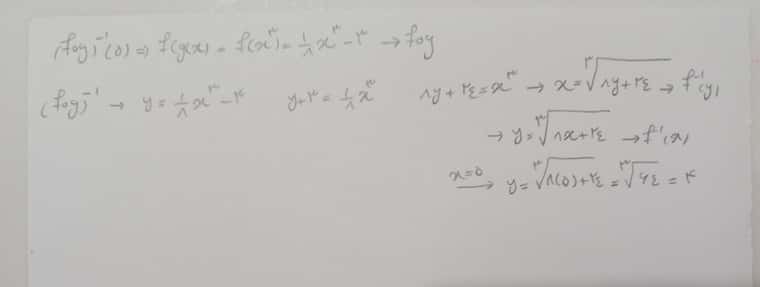 (fog)⁻¹(۵) ⇒ f(g(x)) = f(x^۳) = ۱/۸ x^۳ - ۳ → fog
(fog)⁻¹ → y = ۱/۸ x^۳ - ۳ y+۳ = ۱/۸ x^۳ ۸y+۲۴ = x^۳ → x = ۳√(۸y+۲۴) → f⁻¹(y)
→ y = ۳√(۸x+۲۴) → f⁻¹(x)
x=۵ → y = ۳√(۸(۵)+۲۴) = ۳√۶۴ = ۴